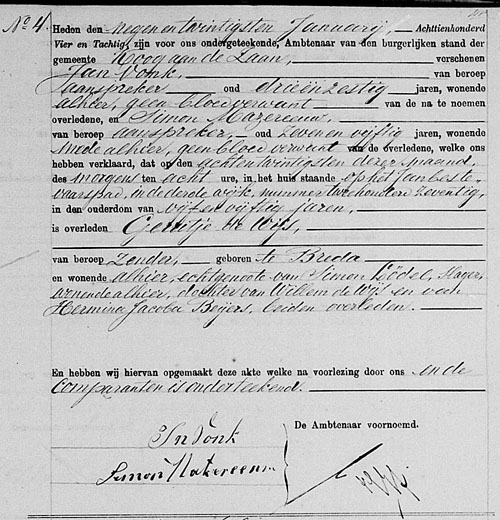 No 4. Heden den Negen en twintigsten Januarij, Achttienhonderd
Vier en Tachtig, zijn voor ons ondergeteekende, Ambtenaar van den burgerlijken stand der
gemeente Koog aan de Zaan, verschenen
Jan Vonk, van beroep
aanspreker oud drieënzestig jaren, wonende
alhier, geen bloedverwant van de na te noemen
overledene, en Simon Mazereeuw,
van beroep aanspreker, oud zeven en vijftig jaren, wonende
mede alhier, geen bloedverwant van de overledene, welke ons
hebben verklaard, dat op den achtentwintigsten dezer maand,
des morgens ten acht ure, in het huis staande op het Jan beste-
vaarspad, in de derde wijk, nummer tweehonderd zeventig,
in den ouderdom van vijf en vijftig jaren,
is overleden Gerritje de Wijs,
van beroep Zonder, geboren te Breda
en wonende alhier, echtgenoote van Simon Ködel, Slager,
wonende alhier, dochter van Willem de Wijs en van
Hermina Jacoba Beijers, beiden overleden.
En hebben wij hiervan opgemaakt deze akte welke na voorlezing door ons en de
Comparanten is onderteekend.
De Ambtenaar voornoemd.
Jn Vonk
Simon Mazereeuw